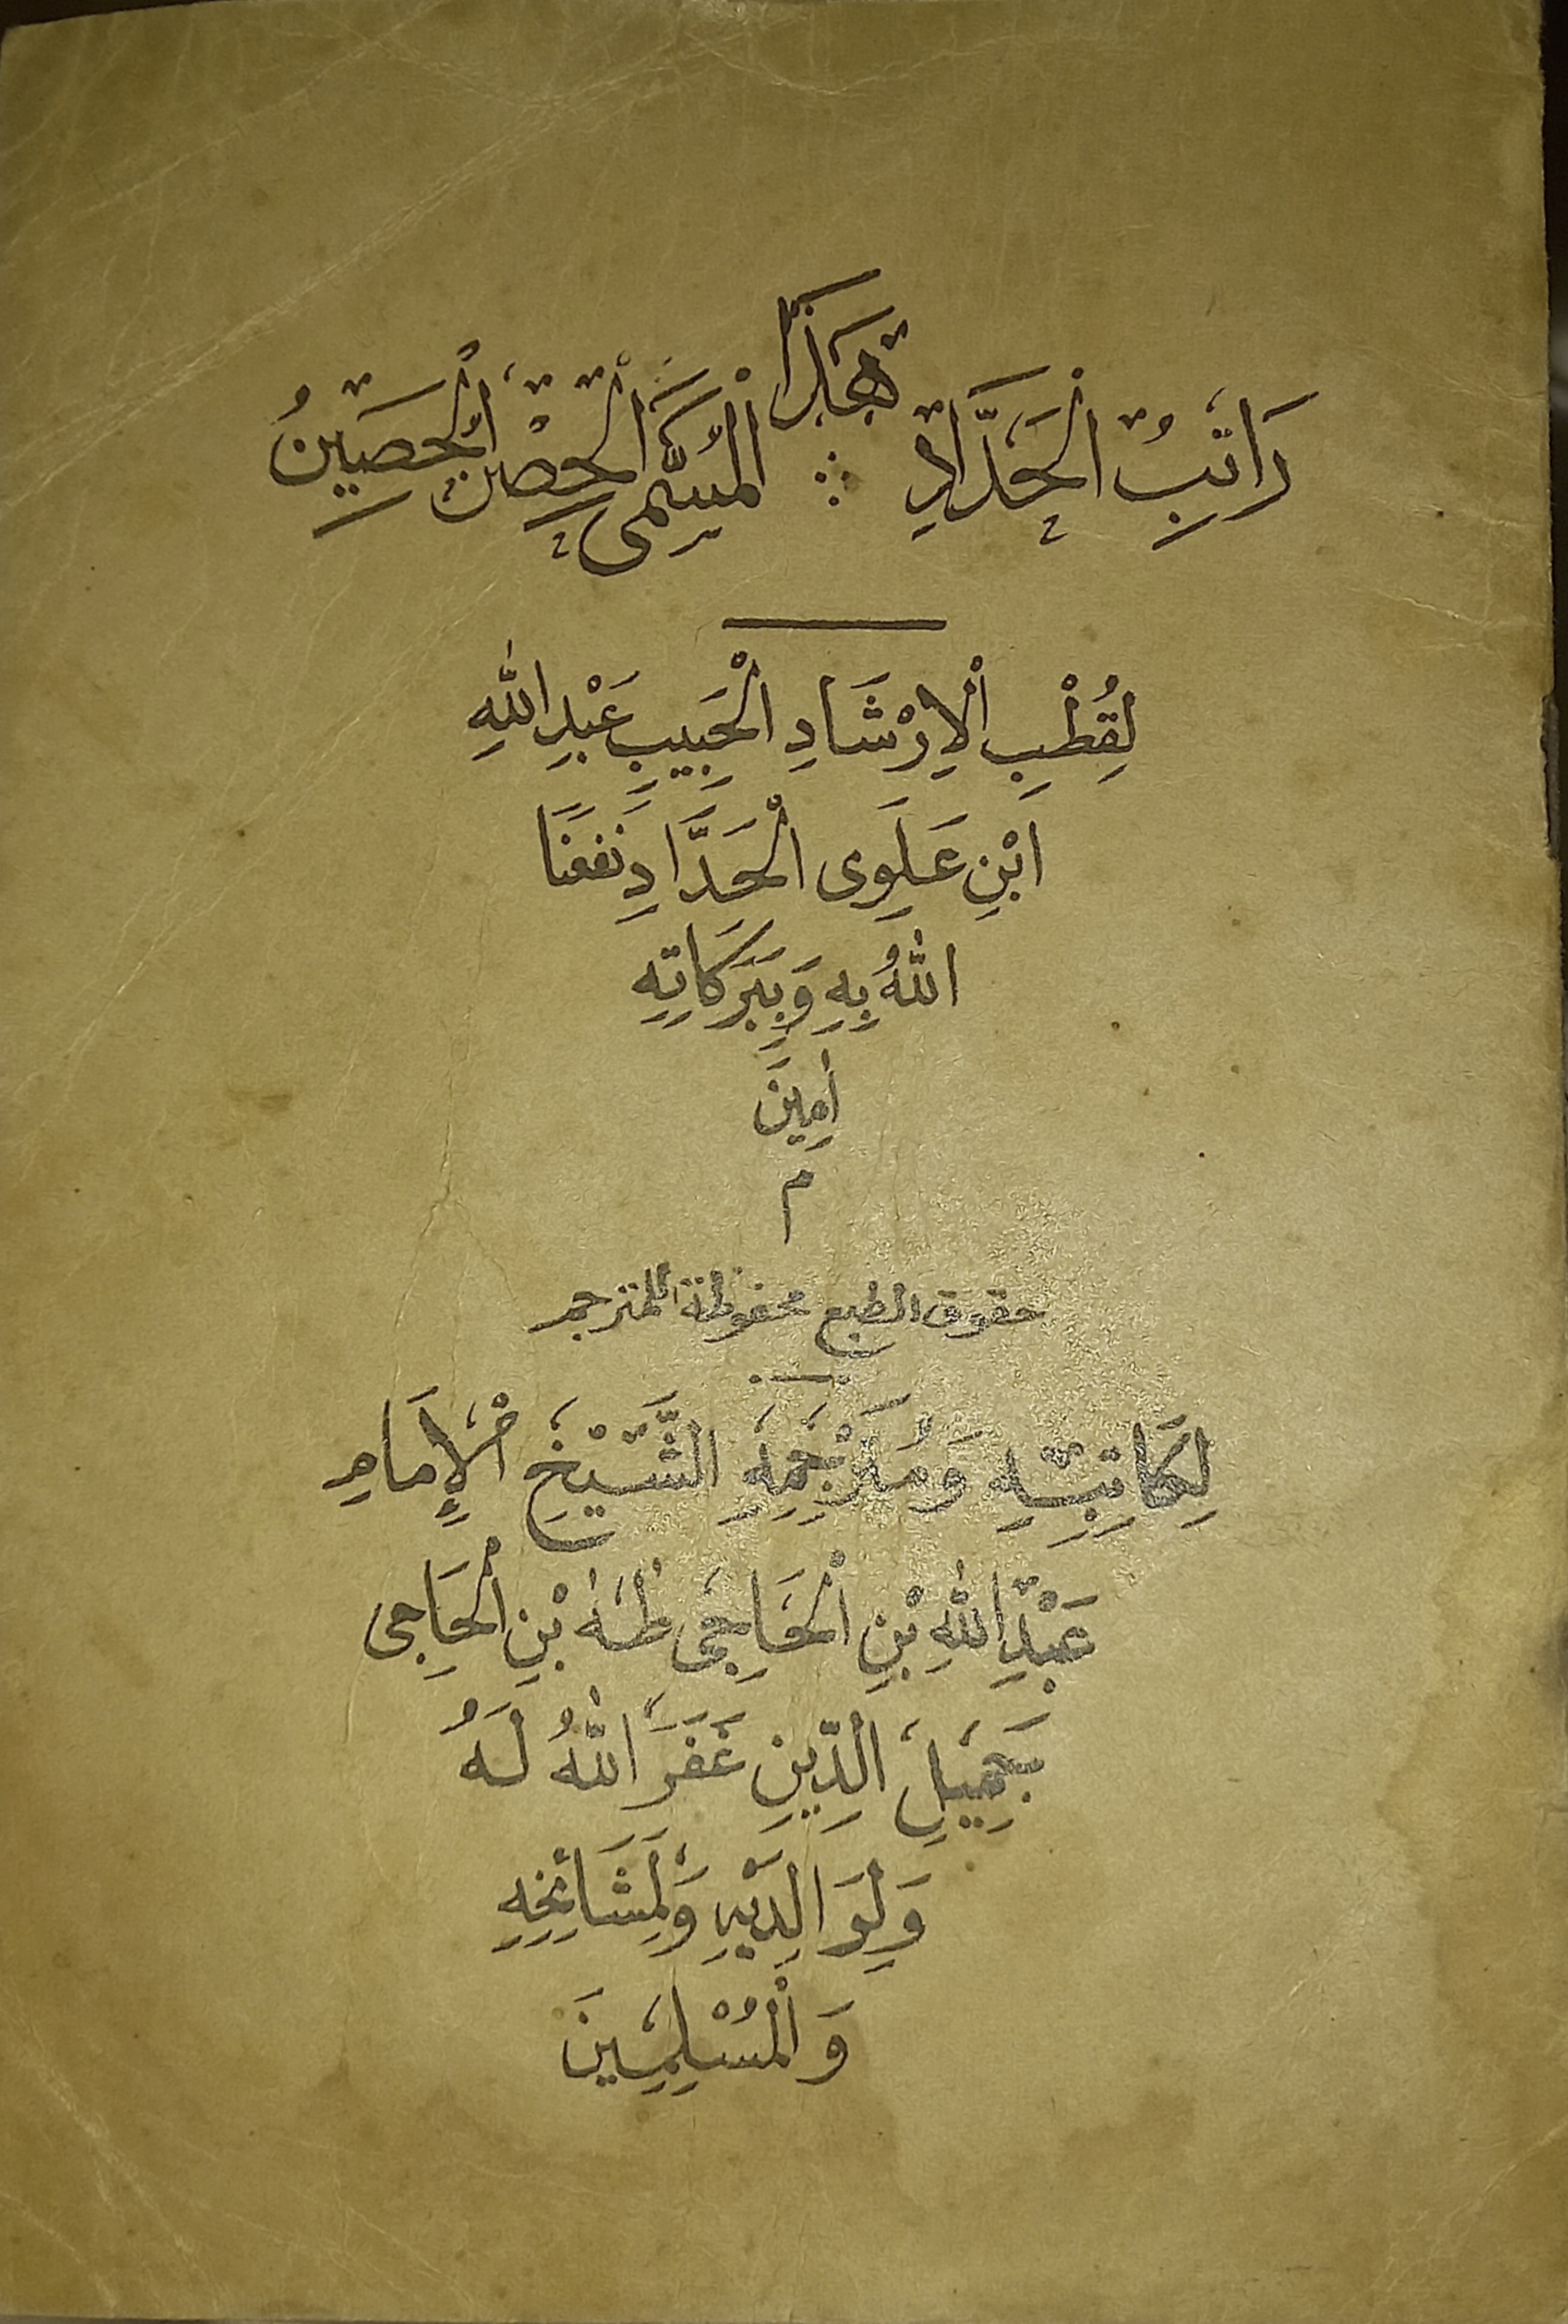 هَذَا
رَاتِبُ الْحَدَّادِ ∴ الْمُسَمَّى الْحِصْنَ الْحَصِينُ
لِقُطْبِ الْاِرْشَادِ الْحَبِيبِ عَبْدِ اللّٰهِ
ابْنِ عَلَوِى الْحَدَّادِ نَفَعَنَا
اللّٰهُ بِهِ وَبِبَرَكَاتِهِ
اٰمِينَ
م
حقوق الطبع محفوظة للمترجم
لِكَاتِبِهِ وَمُتَرْجِمِهِ الشَّيْخِ الْإِمَامِ
عَبْدِ اللّٰهِ بْنِ الْحَاجِى طٰهٰ بْنِ الْحَاجِى
جَمِيْلِ الدِّيْنِ غَفَرَ اللّٰهُ لَهُ
وَلِوَالِدَيْهِ وَلِمَشَائِخِهِ
وَالْمُسْلِمِينَ